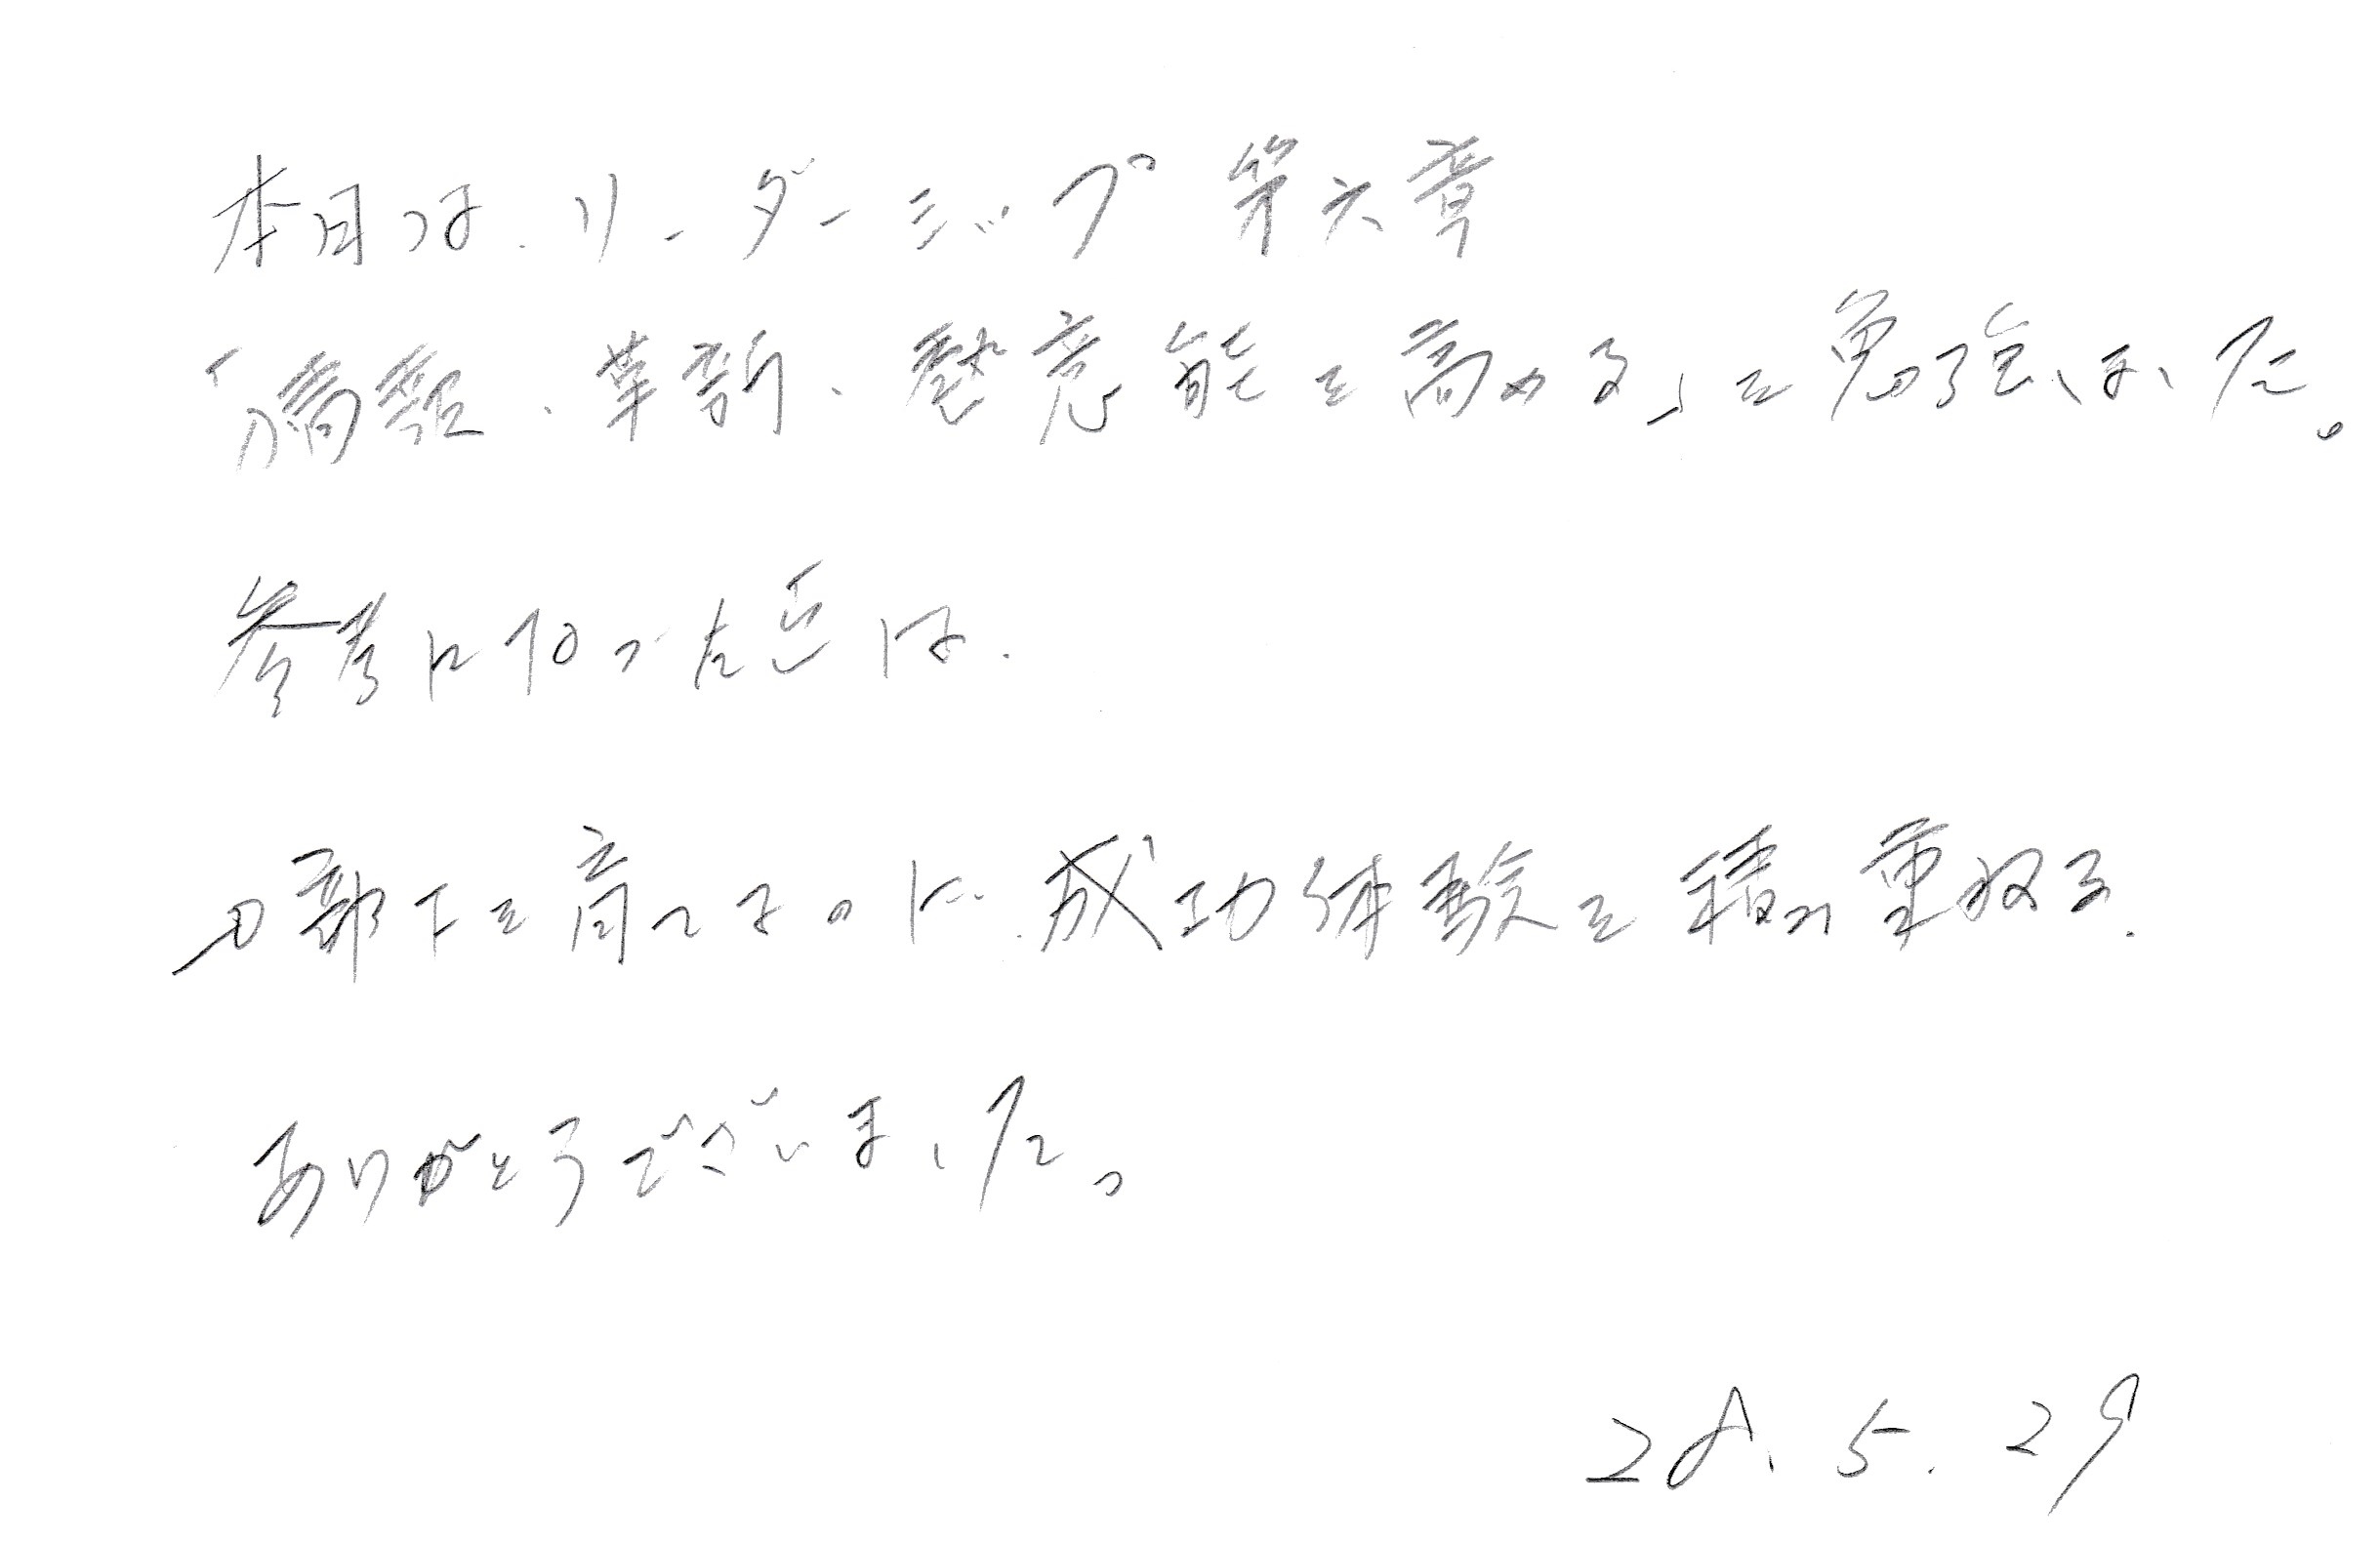 本日は、リーダーシップ 第六章
「情報、革新、整意能を高める」を勉強しました。
参考になった点は、
○部下を育てるのに、成功体験を積み重ねる.
ありがとうございました。
28. 5. 29